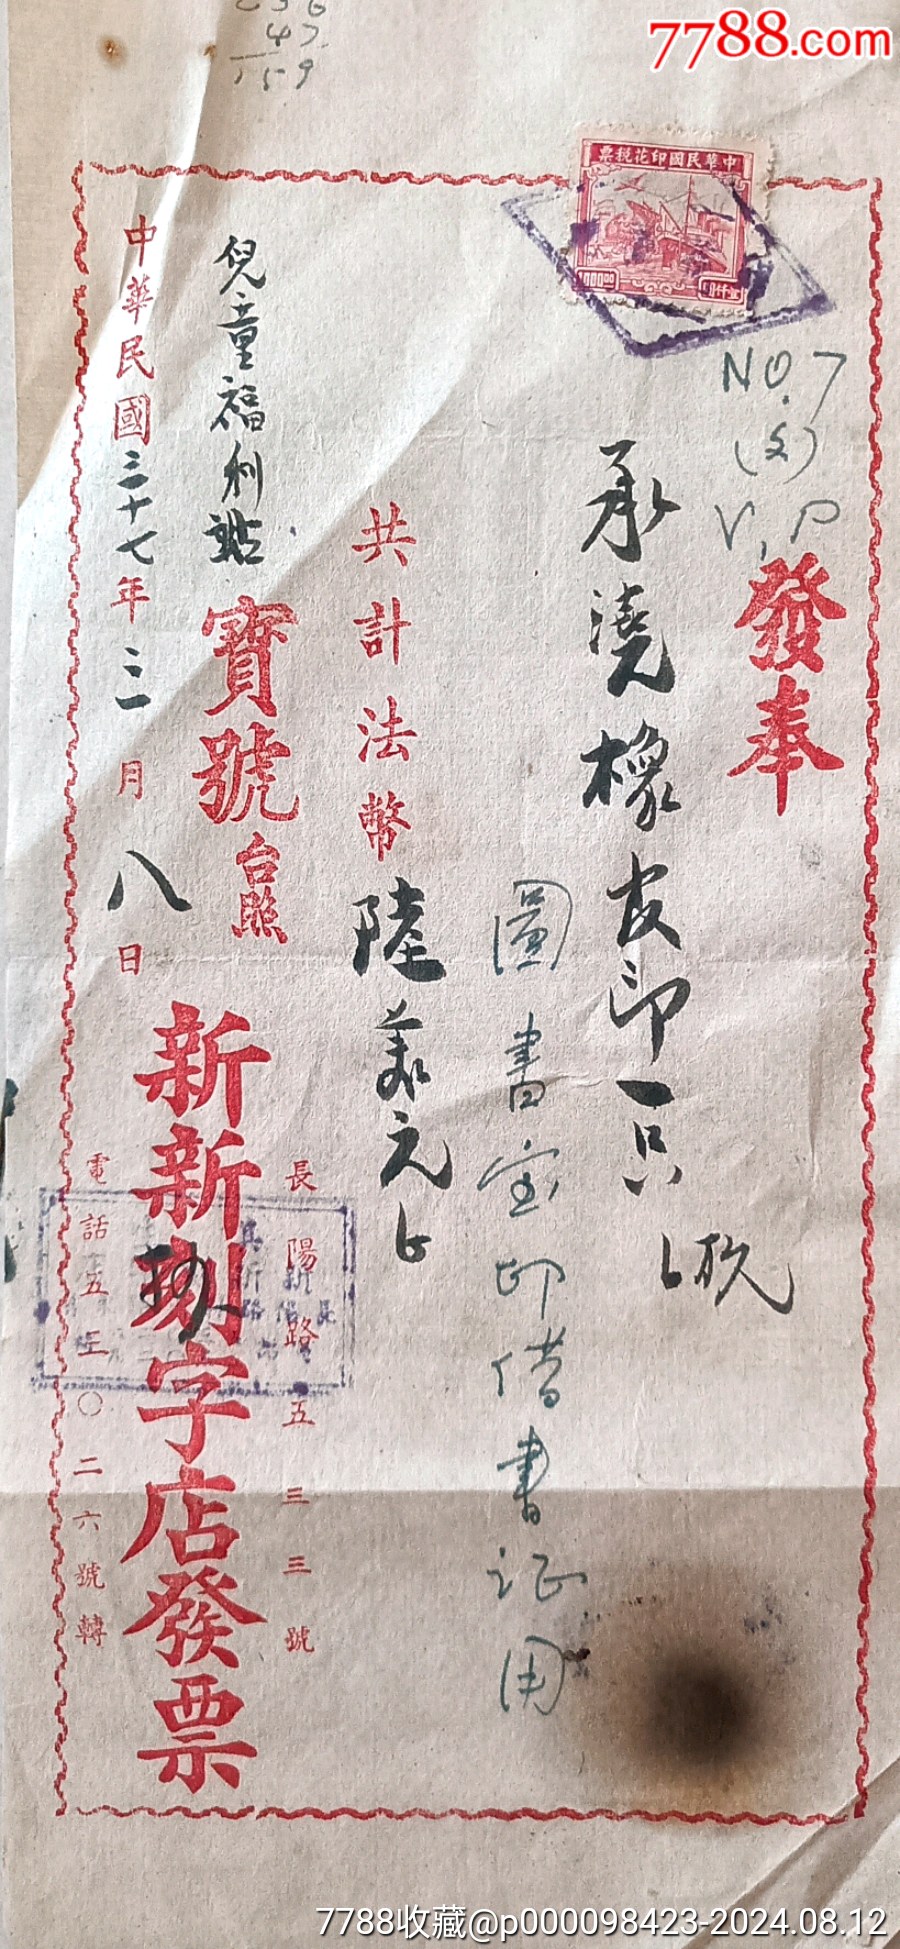 7788.com
47
159
中華民國印花稅票
NO.7
(文)
V.P
發奉
承澆橡皮印一只
圖書室印借書证用
共計法幣陸萬元
兒童福利站 寶號台照
中華民國三十七年三月八日
長陽路五三三號
新新刻字店發票
電話五三〇二六號轉
7788收藏@p000098423-2024.08.12